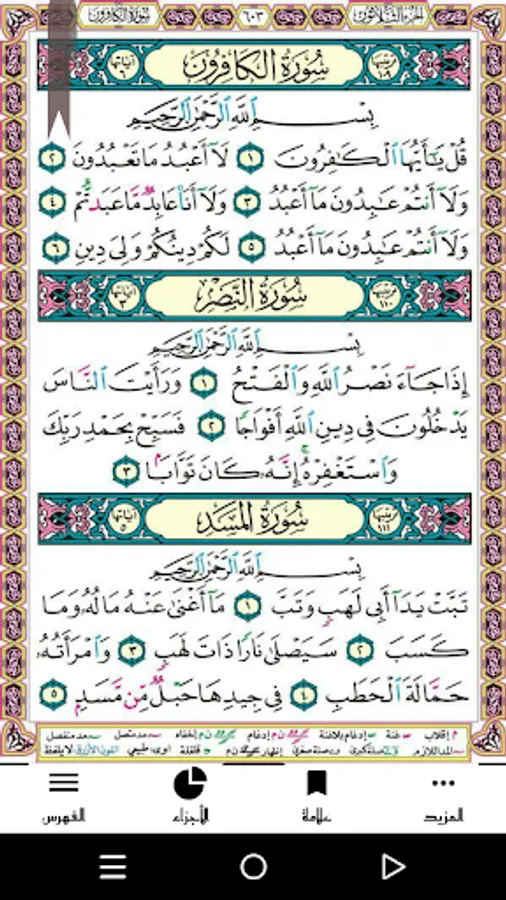 الجزء الثلاثون ٦٠٣ سورة الكافرون
ترتيبها ١٠٩ سُورَةُ الكَافِرُونَ آياتها ٦
بِسْمِ ٱللَّهِ ٱلرَّحْمَٰنِ ٱلرَّحِيمِ
قُلْ يَٰٓأَيُّهَا ٱلْكَٰفِرُونَ ١ لَآ أَعْبُدُ مَا تَعْبُدُونَ ٢
وَلَآ أَنتُمْ عَٰبِدُونَ مَآ أَعْبُدُ ٣ وَلَآ أَنَا۠ عَابِدٌ مَّا عَبَدتُّمْ ٤
وَلَآ أَنتُمْ عَٰبِدُونَ مَآ أَعْبُدُ ٥ لَكُمْ دِينُكُمْ وَلِىَ دِينِ ٦
ترتيبها ١١٠ سُورَةُ النَّصْرِ آياتها ٣
بِسْمِ ٱللَّهِ ٱلرَّحْمَٰنِ ٱلرَّحِيمِ
إِذَا جَآءَ نَصْرُ ٱللَّهِ وَٱلْفَتْحُ ١ وَرَأَيْتَ ٱلنَّاسَ
يَدْخُلُونَ فِى دِينِ ٱللَّهِ أَفْوَاجًا ٢ فَسَبِّحْ بِحَمْدِ رَبِّكَ
وَٱسْتَغْفِرْهُ إِنَّهُۥ كَانَ تَوَّابًۢا ٣
ترتيبها ١١١ سُورَةُ المَسَدِ آياتها ٥
بِسْمِ ٱللَّهِ ٱلرَّحْمَٰنِ ٱلرَّحِيمِ
تَبَّتْ يَدَآ أَبِى لَهَبٍ وَتَبَّ ١ مَآ أَغْنَىٰ عَنْهُ مَالُهُۥ وَمَا
كَسَبَ ٢ سَيَصْلَىٰ نَارًا ذَاتَ لَهَبٍ ٣ وَٱمْرَأَتُهُۥ
حَمَّالَةَ ٱلْحَطَبِ ٤ فِى جِيدِهَا حَبْلٌ مِّن مَّسَدٍۭ ٥
م إقلاب غنة إدغام بلاغنة إدغام إخفاء مد متصل مد منفصل
المد اللازم صلة كبرى صلة صغرى إظهار قلقلة طبيعي اللون الأزرق لا يلفظ
المزيد علامة الأجزاء الفهرس